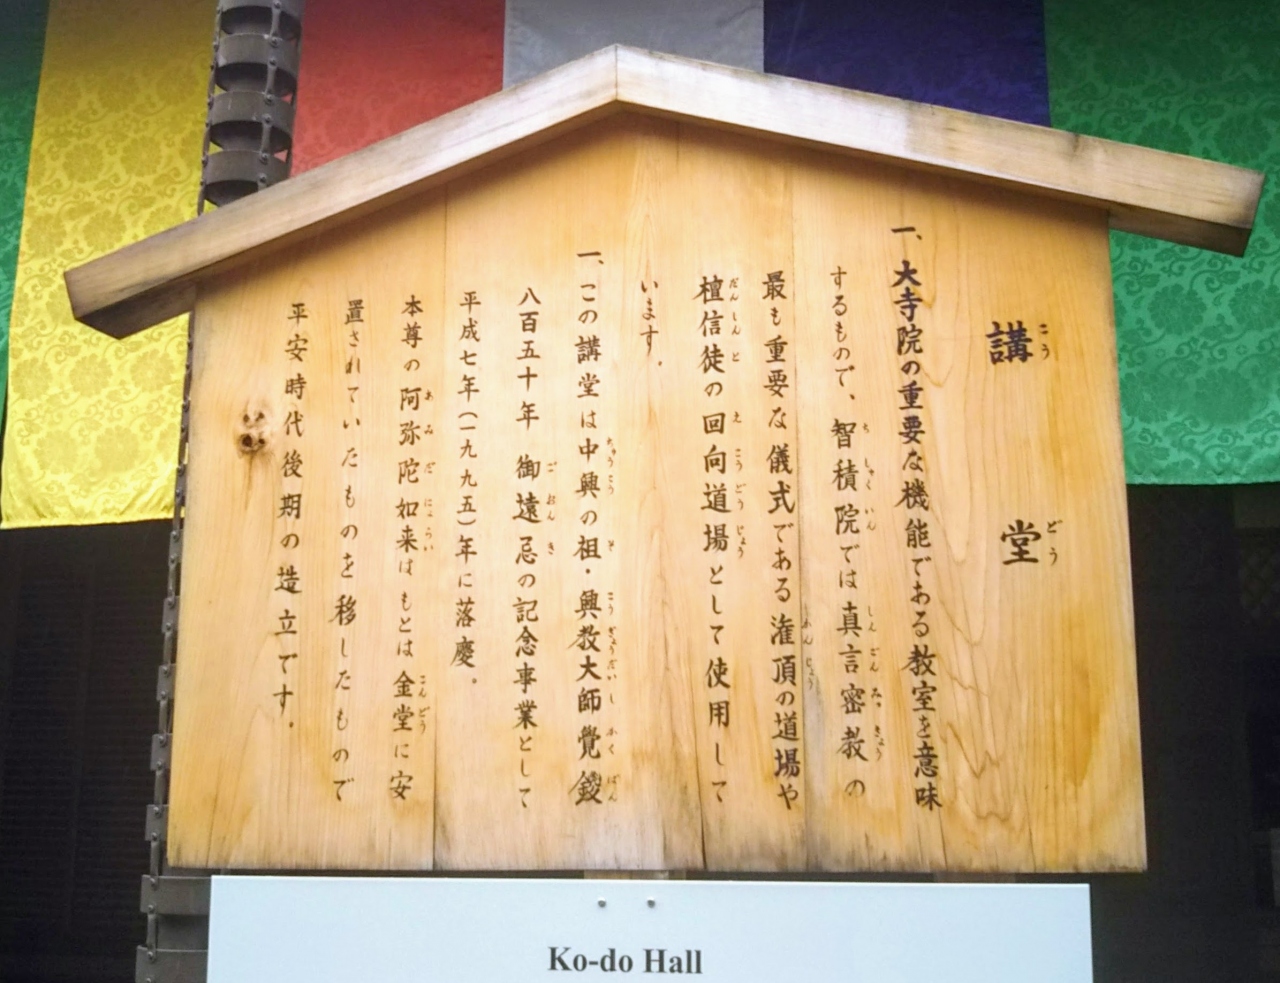 講堂
一、大寺院の重要な機能である教室を意味
するもので、智積院では真言密教の
最も重要な儀式である潅頂の道場や
檀信徒の回向道場として使用して
います。
一、この講堂は中興の祖・興教大師覺鑁
八百五十年御遠忌の記念事業として
平成七年(一九九五)年に落慶。
本尊の阿弥陀如来はもとは金堂に安
置されていたものを移したもので
平安時代後期の造立です。
Ko-do Hall